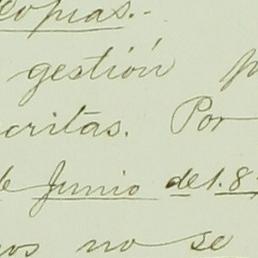 Copias.-
gestión
critas. Por
de Junio de 1.8
no se